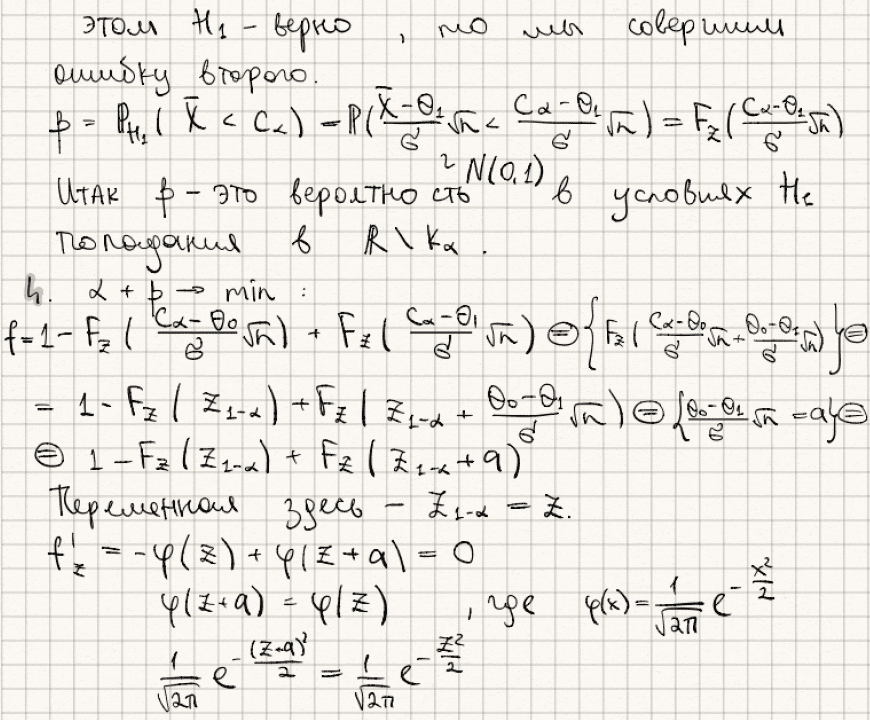 этом H₁ - верно , то мы совершим
ошибку второго.
β = P_{H₁}( X̄ < C_α) = P( (X̄-θ₁)/σ √n < (C_α-θ₁)/σ √n ) = F_z( (C_α-θ₁)/σ √n)
~ N(0,1)
Итак β - это вероятность в условиях H₁
попадания в R \ K_α .
4. α + β → min :
f = 1 - F_z ( (C_α-θ₀)/σ √n) + F_z ( (C_α-θ₁)/σ √n) ⊜ { F_z ( (C_α-θ₀)/σ √n + (θ₀-θ₁)/σ √n) } ⊜
= 1 - F_z ( z_{1-α} ) + F_z ( z_{1-α} + (θ₀-θ₁)/σ √n ) ⊜ { (θ₀-θ₁)/σ √n = a } ⊜
⊜ 1 - F_z ( z_{1-α} ) + F_z ( z_{1-α} + a )
Переменная здесь - z_{1-α} = z.
f'_z = - φ(z) + φ(z + a) = 0
φ(z+a) = φ(z) , где φ(x) = 1/√2π e^{-x²/2}
1/√2π e^{-(z-a)²/2} = 1/√2π e^{-z²/2}